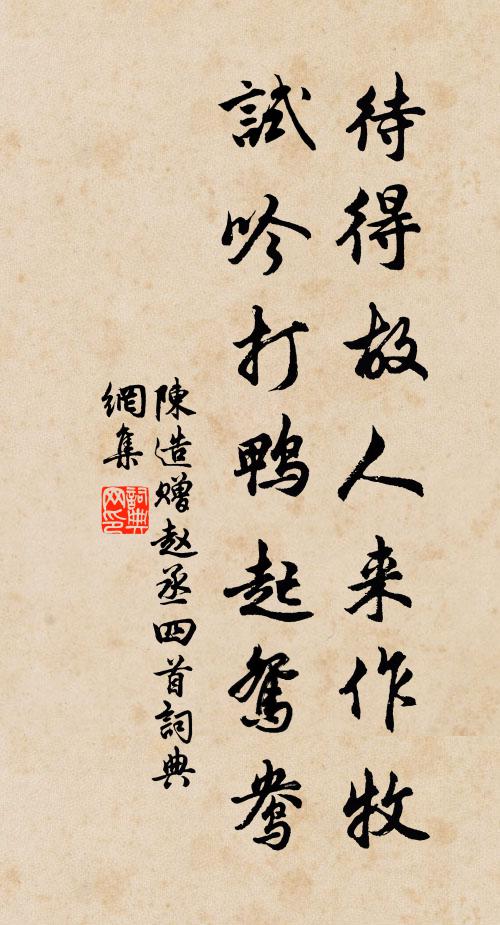 待得故人来作牧
試吟打鴨起鴛鴦
陳造赠赵丞四首詞典
網集
詞典
网印